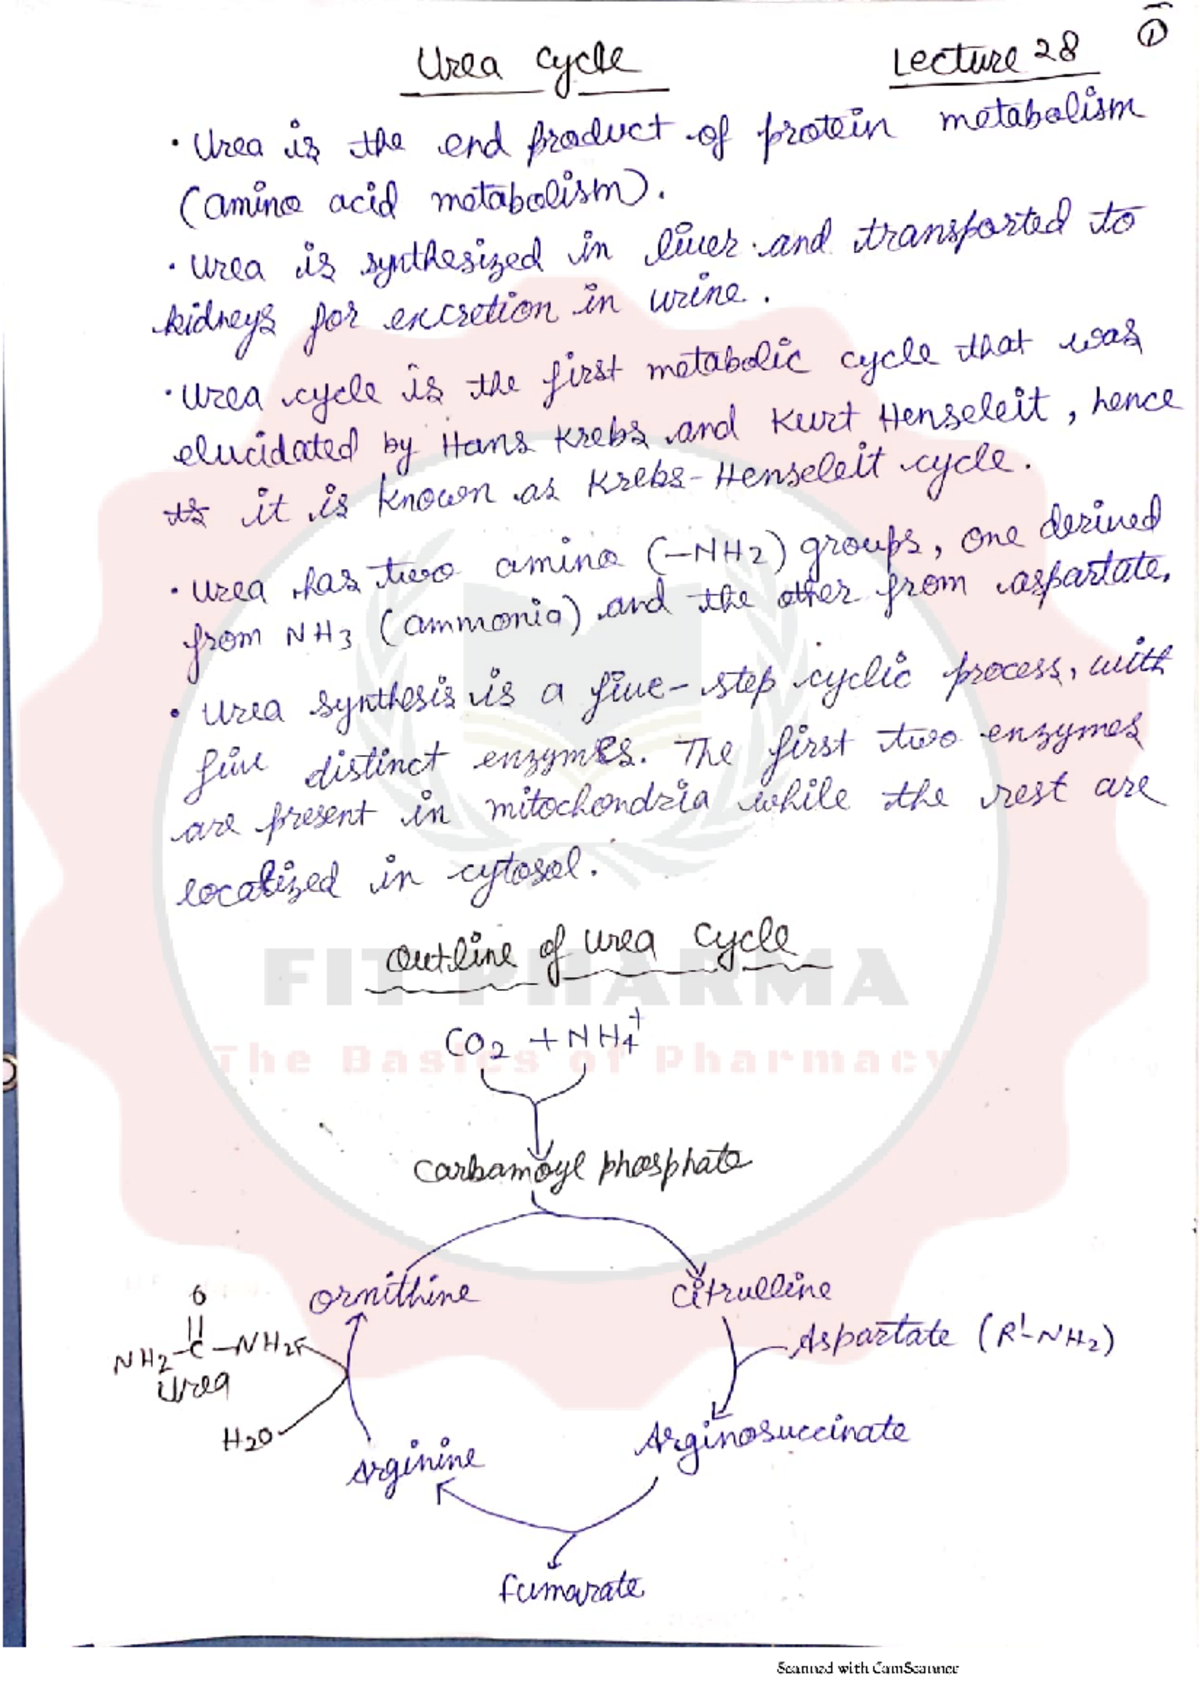 Urea cycle
Lecture 28
①
• Urea is the end product of protein metabolism
(amino acid metabolism).
• Urea is synthesized in liver and transported to
kidneys for excretion in urine.
• Urea cycle is the first metabolic cycle that was
elucidated by Hans Krebs and Kurt Henseleit, hence
it is known as Krebs-Henseleit cycle.
• Urea has two amino (-NH2) groups, one derived
from NH3 (ammonia) and the other from aspartate.
• Urea synthesis is a five-step cyclic process, with
five distinct enzymes. The first two enzymes
are present in mitochondria while the rest are
localized in cytosol.
Outline of Urea Cycle
FIT PHARMA
CO2 + NH4+
The Basics of Pharmacy
Carbamoyl phosphate
Ornithine
Citrulline
O
||
NH2-C-NH2
Urea
Aspartate (R'-NH2)
H2O
Arginosuccinate
Arginine
fumarate
Scanned with CamScanner